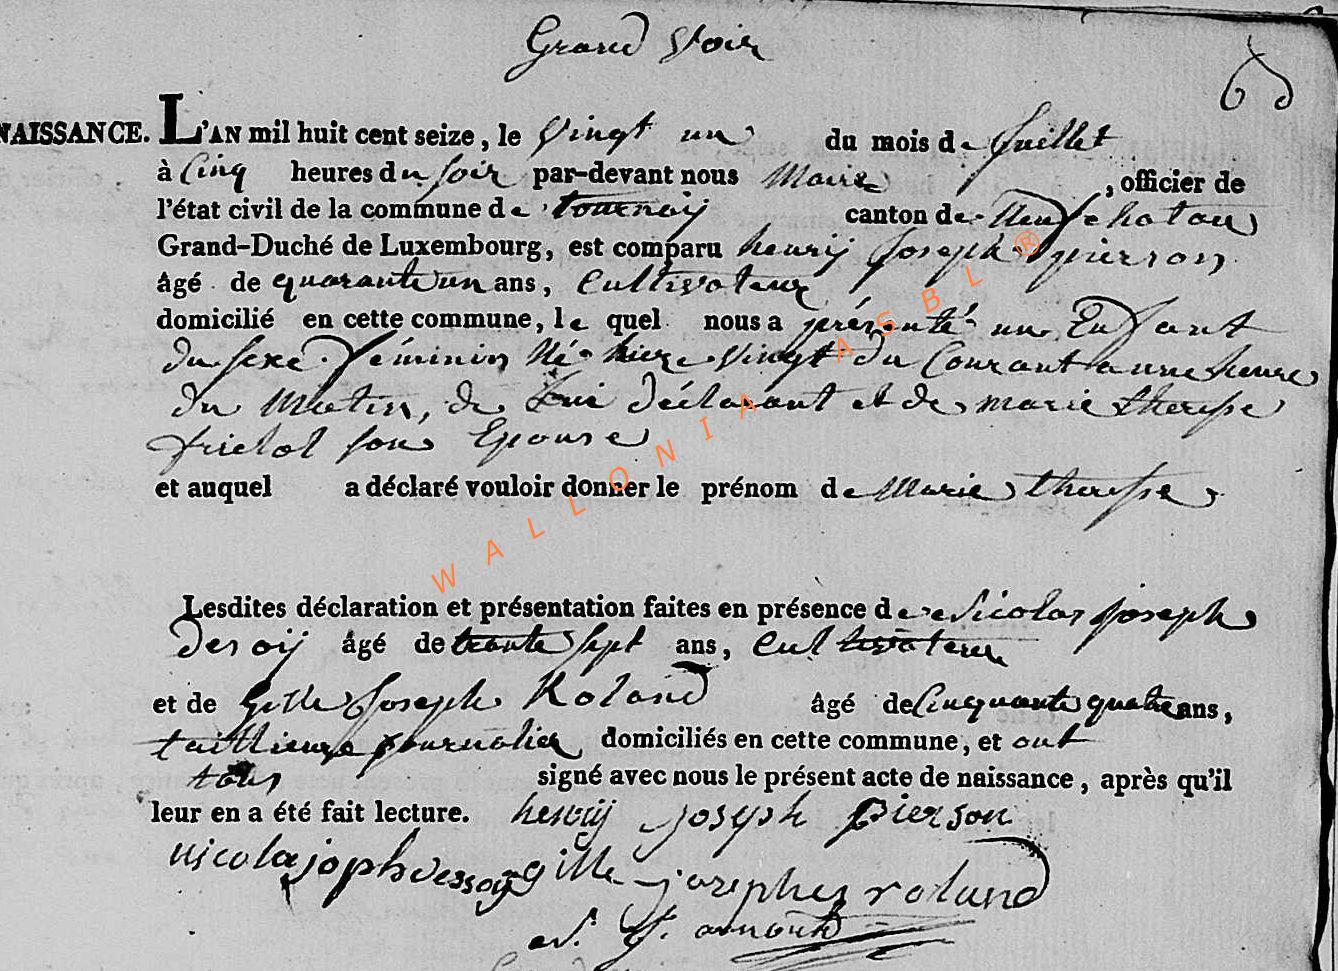 Grand Voir
NAISSANCE. L'AN mil huit cent seize, le Vingt un du mois de Juillet
à Cinq heures du soir par-devant nous Maire, officier de
l'état civil de la commune de tournaÿ canton de Neufchateau
Grand-Duché de Luxembourg, est comparu henrÿ Joseph pierson
âgé de quarante un ans, Cultivateur
domicilié en cette commune, le quel nous a présenté un Enfant
du sexe féminin Né hier Vingt du Courant a une heure
du Matin, de Lui déclarant et de marie therese
son Epouse
et auquel a déclaré vouloir donner le prénom de Marie therese
Lesdites déclaration et présentation faites en présence de Nicolas joseph
Desoÿ âgé de trente sept ans, cultivateur
et de Gille Joseph Roland âgé de Cinquante quatre ans,
journalier domiciliés en cette commune, et ont
tous signé avec nous le présent acte de naissance, après qu'il
leur en a été fait lecture. henrÿ joseph pierson
nicola joph dessoÿ gille josephe roland
arnould
WALLONIA ASBL ®